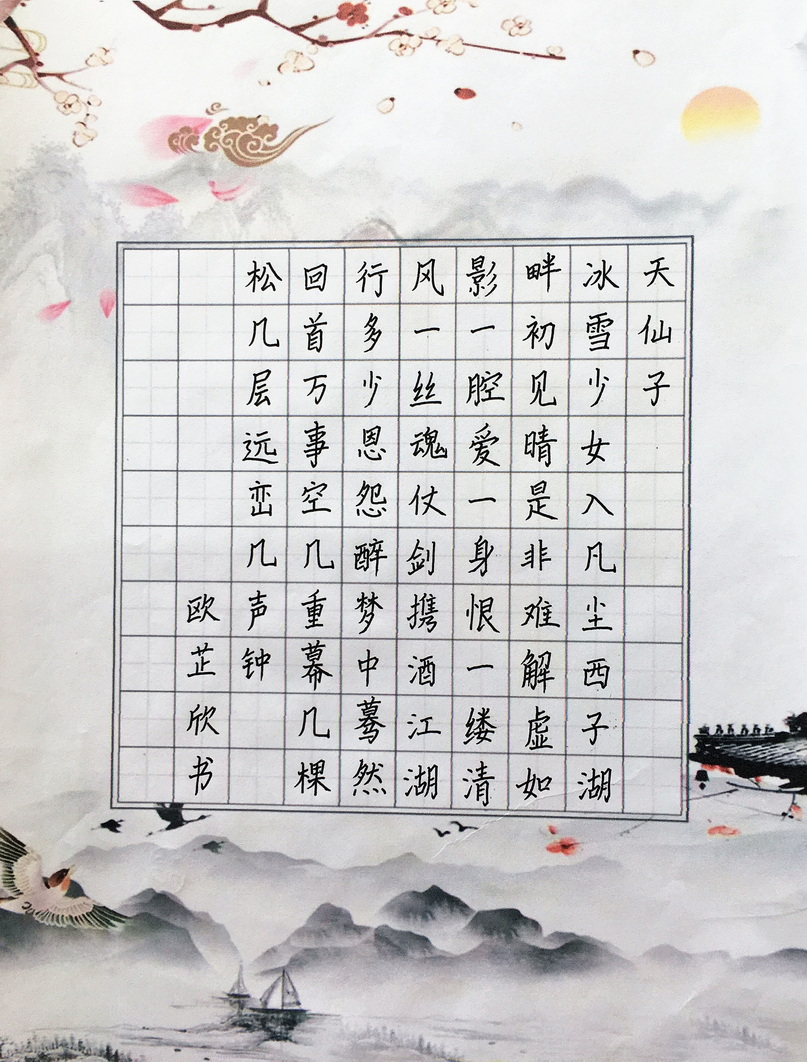 天仙子
冰雪少女入凡尘西子湖
畔初见晴是非难解虚如
影一腔爱一身恨一缕清
风一丝魂仗剑携酒江湖
行多少恩怨醉梦中蓦然
回首万事空几重幕几棵
松几层远峦几声钟
欧芷欣书